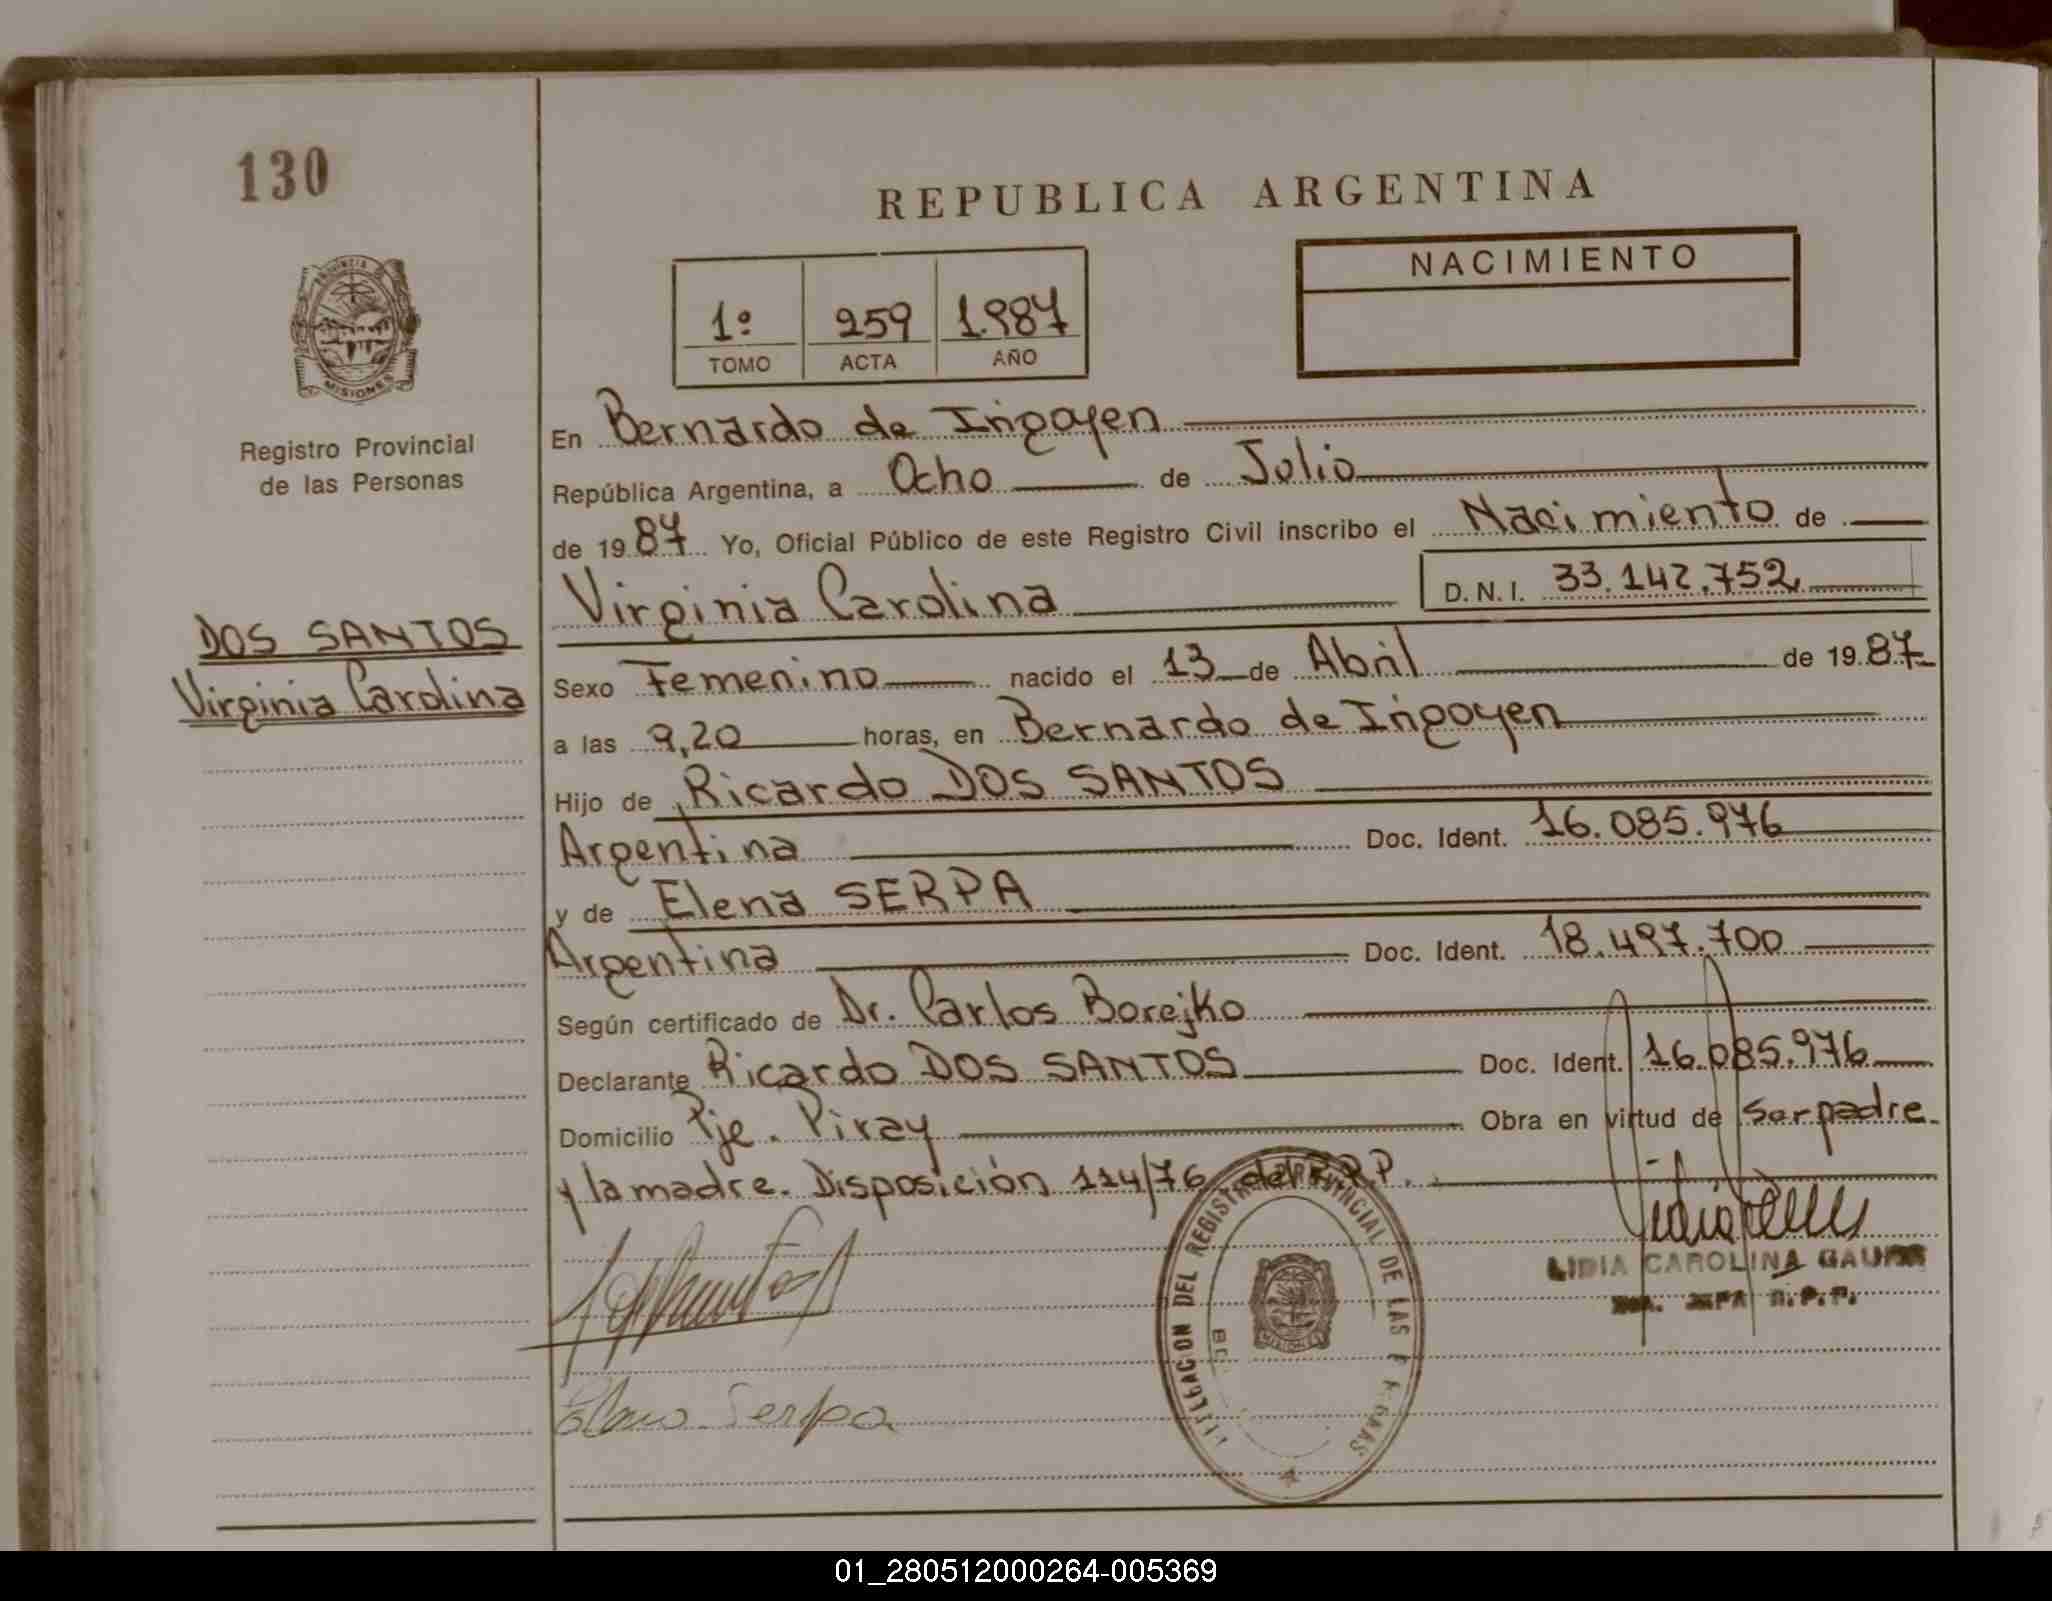 130
REPUBLICA ARGENTINA
PROVINCIA DE
MISIONES
Registro Provincial
de las Personas
1º 259 1.987
TOMO ACTA AÑO
NACIMIENTO
En Bernardo de Irigoyen
República Argentina, a Ocho de Julio
de 1987 Yo, Oficial Público de este Registro Civil inscribo el Nacimiento de
Virginia Carolina D.N.I. 33.142.752
DOS SANTOS
Virginia Carolina
Sexo Femenino nacido el 13 de Abril de 1987
a las 9,20 horas, en Bernardo de Irigoyen
Hijo de Ricardo DOS SANTOS
Argentina Doc. Ident. 16.085.976
y de Elena SERPA
Argentina Doc. Ident. 18.497.700
Según certificado de Dr. Carlos Borejko
Declarante Ricardo DOS SANTOS Doc. Ident. 16.085.976
Domicilio Pje. Piray Obra en virtud de ser padre
y la madre. Disposición 114/76 del R.P.P.
LIDIA CAROLINA
JEFA R.P.P.
DELEGACION DEL REGISTRO PROVINCIAL DE LAS
MISIONES
Elena Serpa
01_280512000264-005369